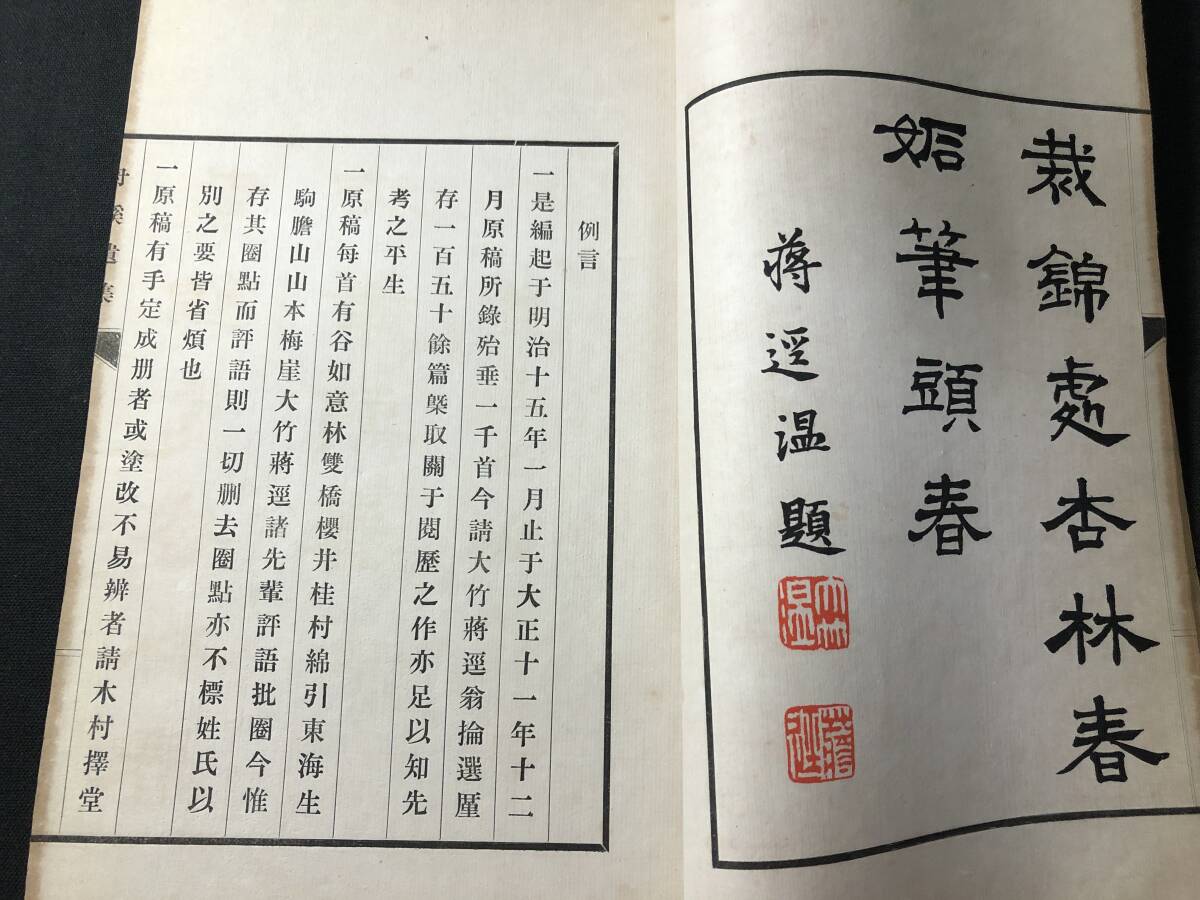 栽錦處杏林春
姤筆頭春
蒋逕温題
大竹
温
蒋逕
例言
一是編起于明治十五年一月止于大正十一年十二
月原稿所錄殆垂一千首今請大竹蔣逕翁掄選厪
存一百五十餘篇槩取關于閱歷之作亦足以知先
考之平生
一原稿每首有谷如意林雙橋櫻井桂村綿引東海生
駒膽山山本梅崖大竹蔣逕諸先輩評語批圈今惟
存其圈點而評語則一切删去圈點亦不標姓氏以
別之要皆省煩也
一原稿有手定成册者或塗改不易辨者請木村擇堂
遺集